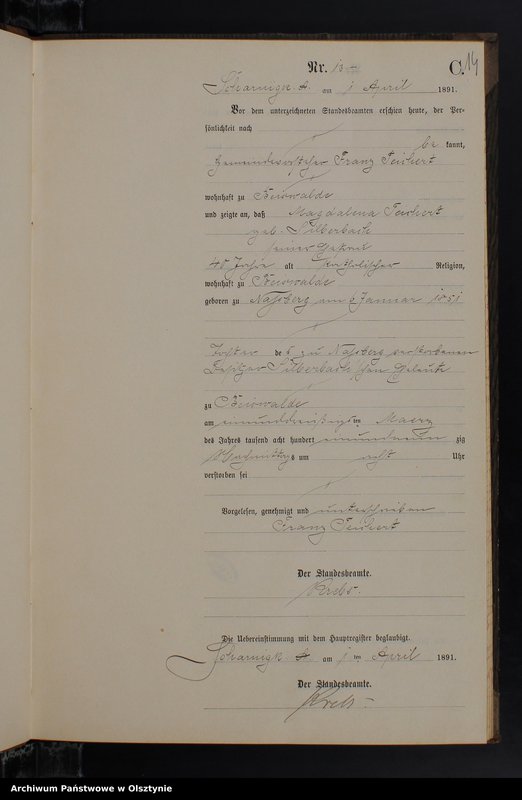 Nr. 13
C.
14
Scharnigk A. am 1 April 1891.
Vor dem unterzeichneten Standesbeamten erschien heute, der Per-
sönlichkeit nach
be kannt,
Gemeindevorsteher Franz Teichert
wohnhaft zu Beiswalde
und zeigte an, daß Magdalena Teichert
geb. Silberbach
seine Ehefrau
40 Jahre alt katholischer Religion,
wohnhaft zu Beiswalde
geboren zu Nassberg am 6 Januar 1851
Tochter de s zu Nassberg verstorbenen
Besitzer Silberbach'schen Eheleute
zu Beiswalde
am einunddreißigs ten Maerz
des Jahres tausend acht hundert einundneun zig
Nachmittags um acht Uhr
verstorben sei
Vorgelesen, genehmigt und unterschrieben
Franz Teichert
Der Standesbeamte.
Krebs.
Die Uebereinstimmung mit dem Hauptregister beglaubigt.
Scharnigk A. am 1 ten April 1891.
Der Standesbeamte.
Krebs
Archiwum Państwowe w Olsztynie